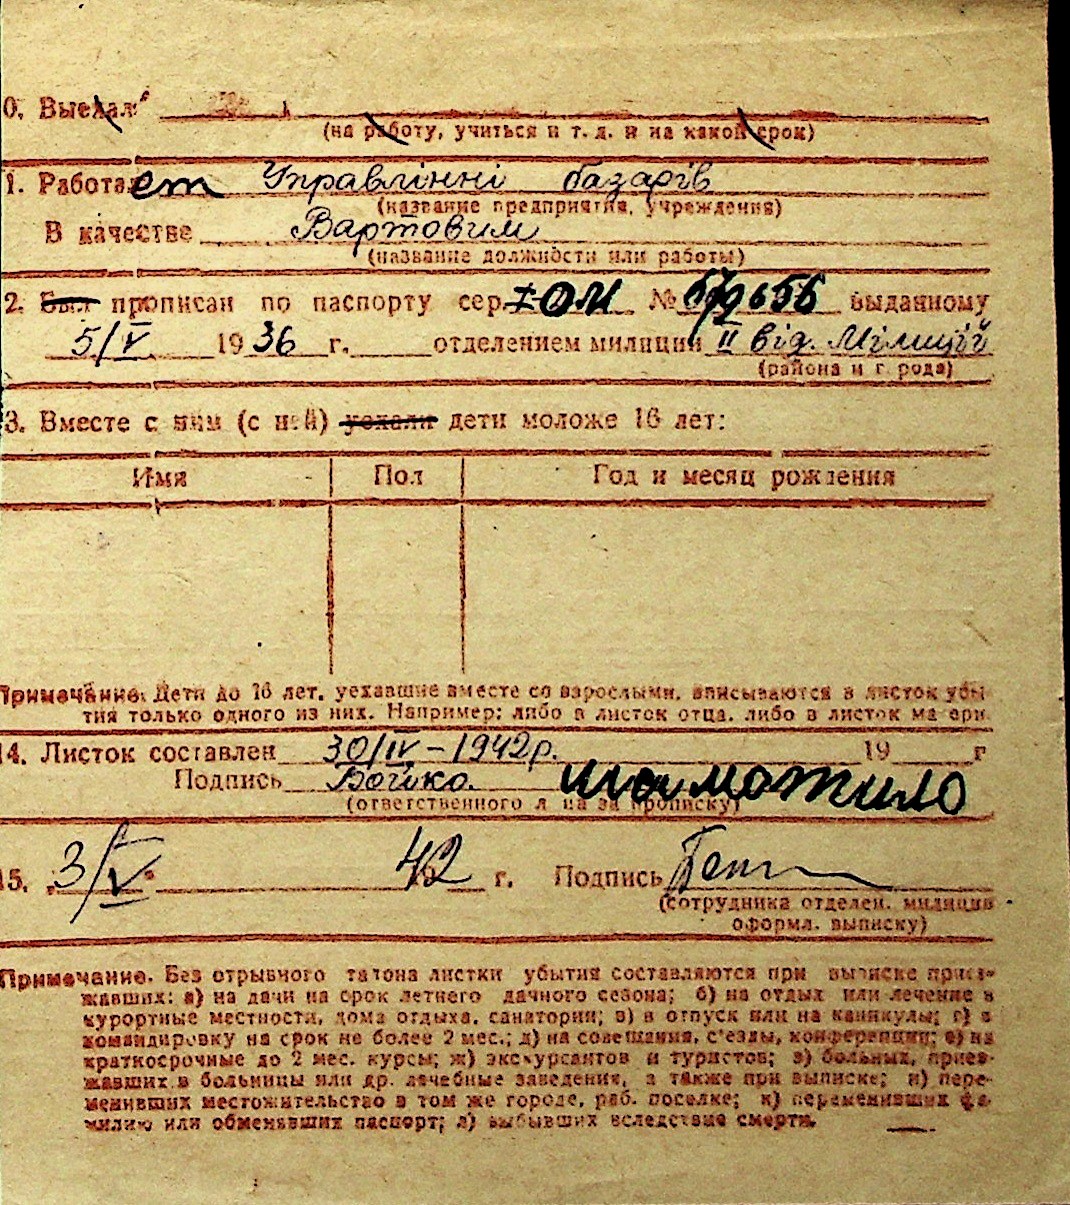 0. Выехал
(на работу, учиться и т. д. и на какой срок)
1. Работает Управлінні базарів
(название предприятия, учреждения)
В качестве Вартовим
(название должности или работы)
2. Был прописан по паспорту сер. № выданному
5/V 1936 г. отделением милиции II від. Міліції
(района и города)
3. Вместе с ним (с ней) уехали дети моложе 16 лет:
Имя Пол Год и месяц рождения
Примечание. Дети до 16 лет, уехавшие вместе со взрослыми, вписываются в листок убы-
тия только одного из них. Например: либо в листок отца, либо в листок матери
14. Листок составлен 30/IV-1942р. 19 г
Подпись Бойко.
(ответственного лица за прописку)
15. „3/V" 42 г. Подпись
(сотрудника отделен. милиции
оформл. выписку)
Примечание. Без отрывного талона листки убытия составляются при выписке приез-
жавших: а) на дачи на срок летнего дачного сезона; б) на отдых или лечение в
курортные местности, дома отдыха, санатории; в) в отпуск или на каникулы; г) в
командировку на срок не более 2 мес.; д) на совещания, с'езды, конференции; е) на
краткосрочные до 2 мес. курсы; ж) экскурсантов и туристов; з) больных, приез-
жавших в больницы или др. лечебные заведения, а также при выписке; и) пере-
менивших местожительство в том же городе, раб. поселке; к) переменивших фа-
милию или обменявших паспорт; л) выбывших вследствие смерти.